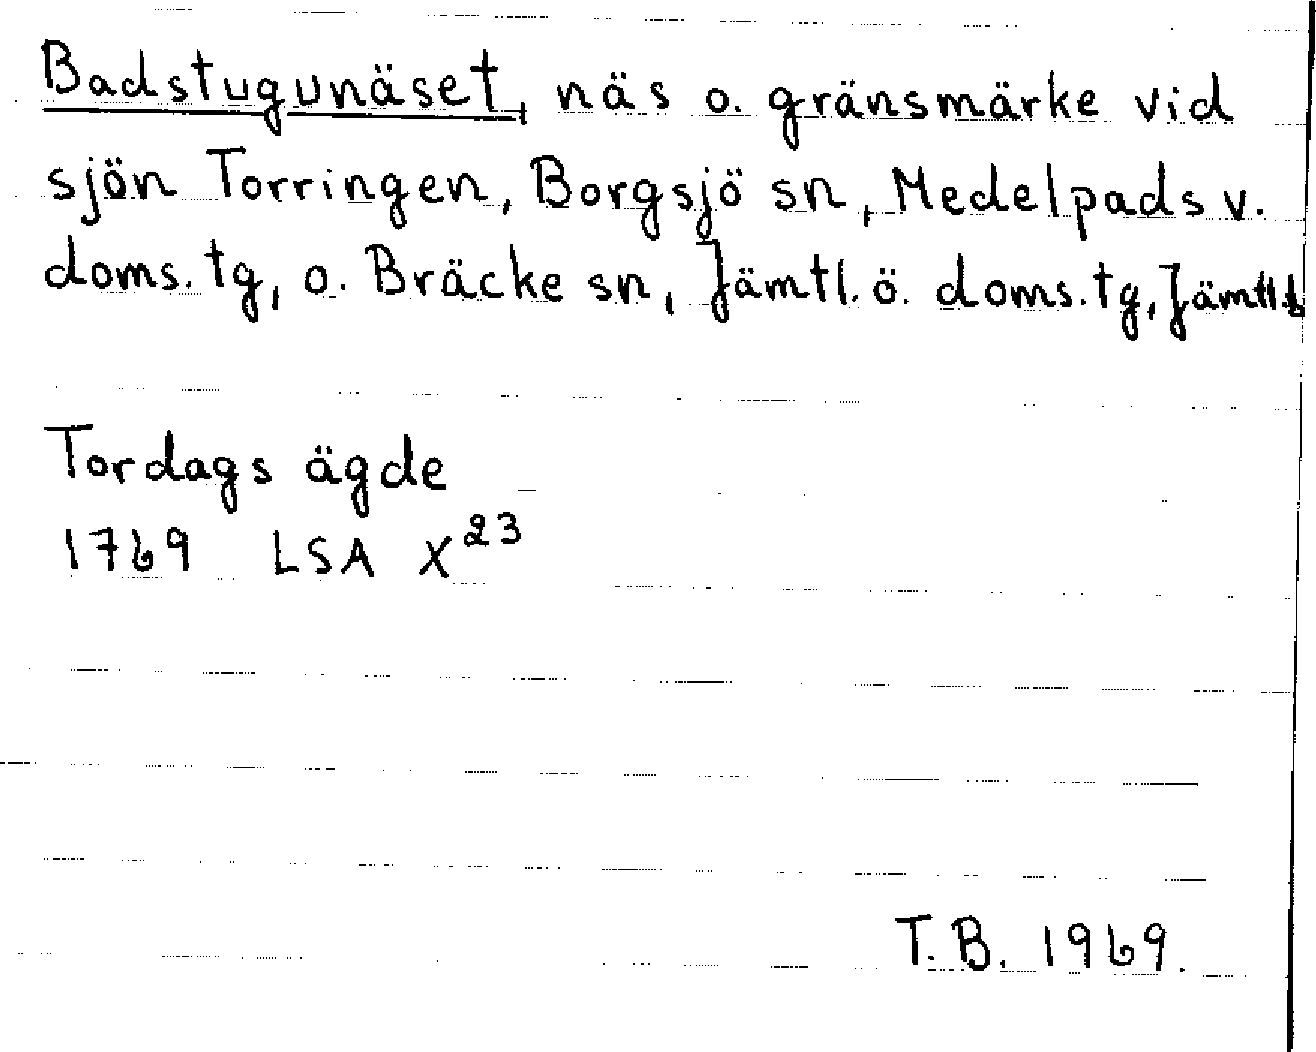 Badstugunäset, näs o. gränsmärke vid
sjön Torringen, Borgsjö sn, Medelpads v.
doms.tg, o. Bräcke sn, Jämtl. ö. doms.tg, Jämtl.
Tordags ägde
1769 LSA X²³
T.B. 1969.